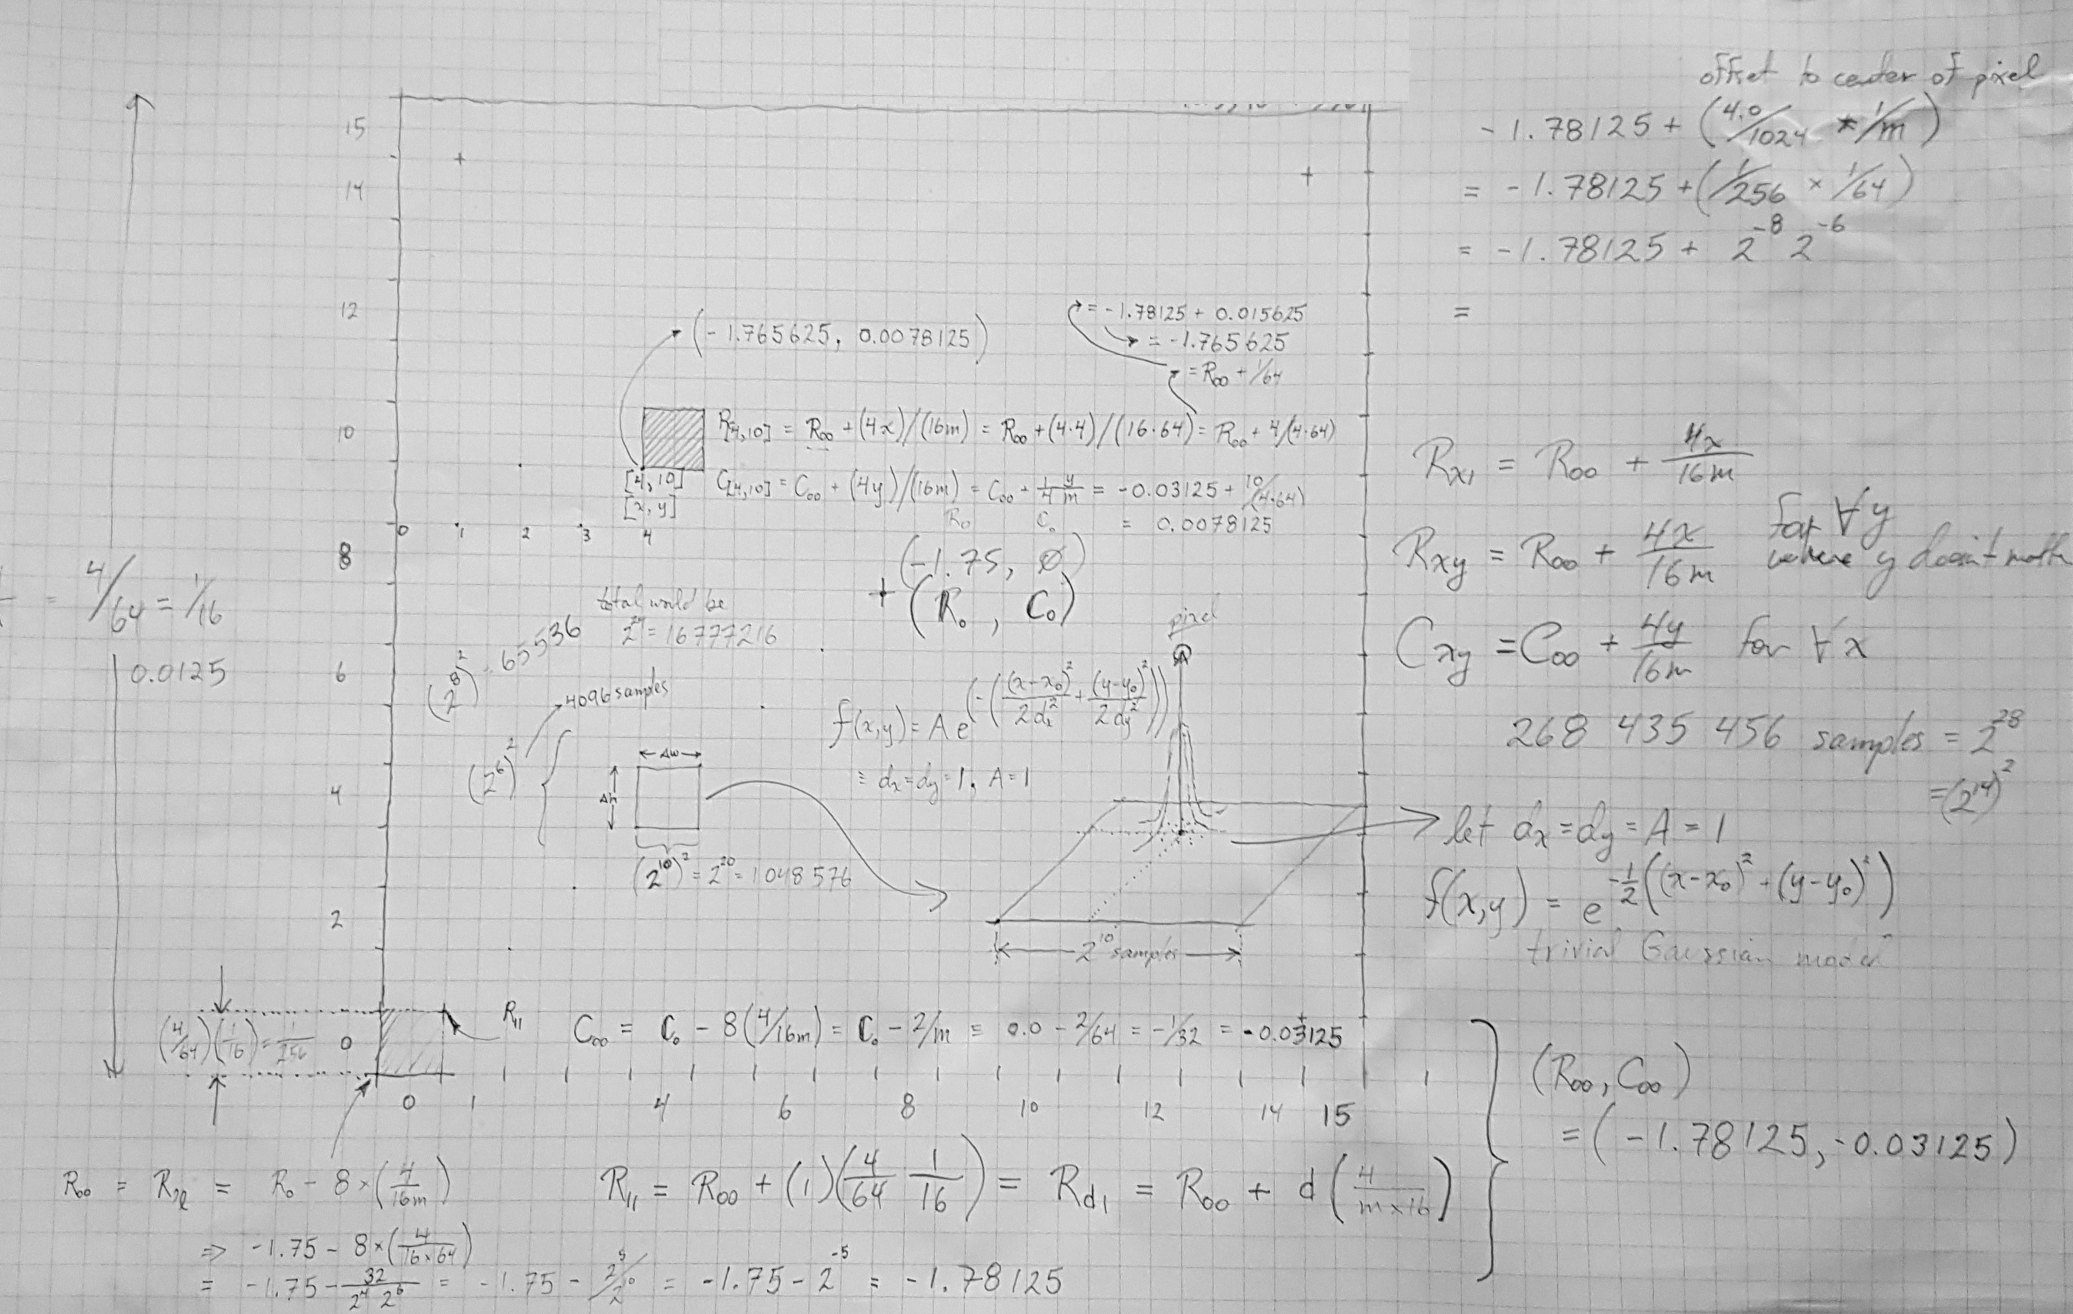 offset to center of pixel
-1.78125 + (4.0/1024 * 1/m)
= -1.78125 + (1/256 × 1/64)
= -1.78125 + 2^-8 2^-6
=
15
14
12
10
8
6
4
2
0
= -1.78125 + 0.015625
= -1.765625
= R00 + 1/64
(-1.765625, 0.0078125)
R[4,10] = R00 + (4x)/(16m) = R00 + (4·4)/(16·64) = R00 + 4/(4·64)
C[4,10] = C00 + (4y)/(16m) = C00 + 1/4 y/m = -0.03125 + 10/(4·64)
= 0.0078125
[4,10]
[x,y]
0 1 2 3 4
R0 C0
(-1.75, Ø)
+ (R0, C0)
= 4/64 = 1/16
0.0125
total would be
2^24 = 16777216
(2^8)^2 = 65536
4096 samples
(2^6)^2
Δw
Δh
(2^10)^2 = 2^20 = 1048576
f(x,y) = A e^(-((x-x0)^2/2dx^2 + (y-y0)^2/2dy^2))
≡ dx = dy = 1, A = 1
pixel
2^10 samples
Rx1 = R00 + 4x/16m
Rxy = R00 + 4x/16m for ∀y
where y doesn't
Cxy = C00 + 4y/16m for ∀x
268 435 456 samples = 2^28
= (2^14)^2
let dx = dy = A = 1
f(x,y) = e^-1/2((x-x0)^2 + (y-y0)^2)
trivial Gaussian model
(4/64)(1/16) = 1/256
R11
C00 = C0 - 8(4/16m) = C0 - 2/m = 0.0 - 2/64 = -1/32 = -0.03125
0 1 4 6 8 10 12 14 15
(R00, C00)
= (-1.78125, -0.03125)
R00 = = R0 - 8 × (4/16m)
⇒ -1.75 - 8 × (4/16×64)
= -1.75 - 32/2^4 2^6 = -1.75 - 2^5/2^10 = -1.75 - 2^-5 = -1.78125
R11 = R00 + (1)(4/64 1/16) = Rd1 = R00 + d(4/m×16)